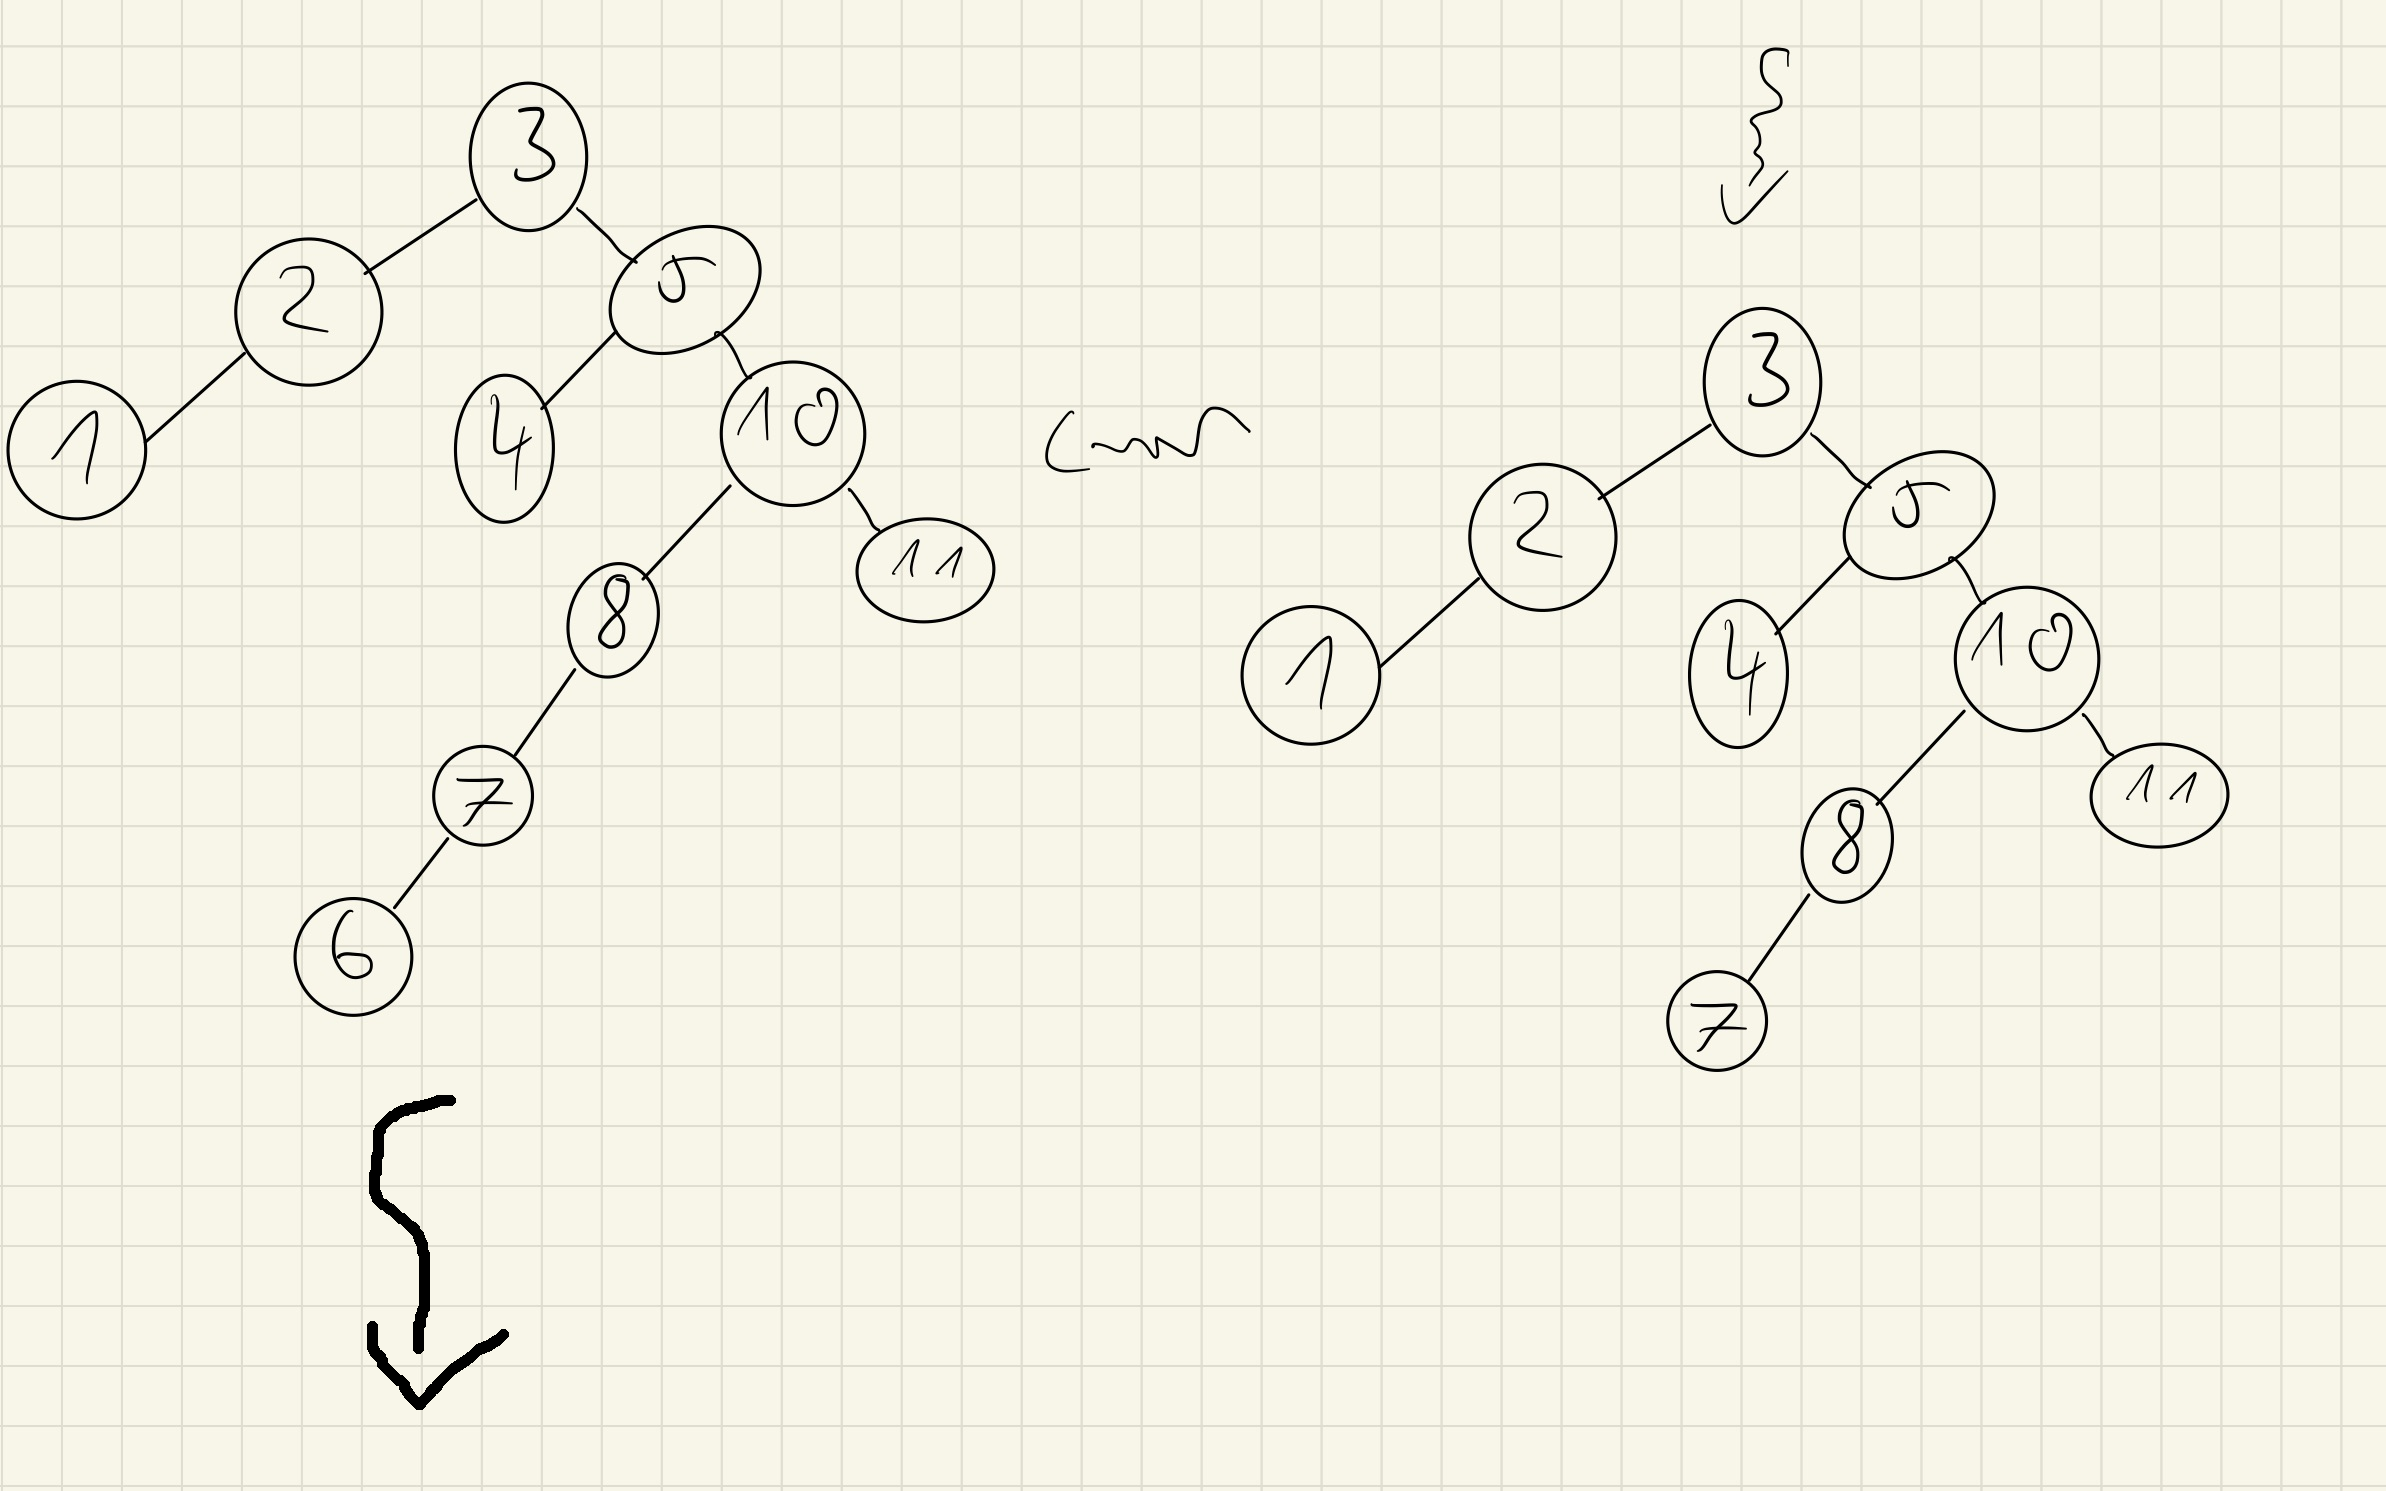 3
2 5
1 4 10
8 11
7
6
3
2 5
1 4 10
8 11
7